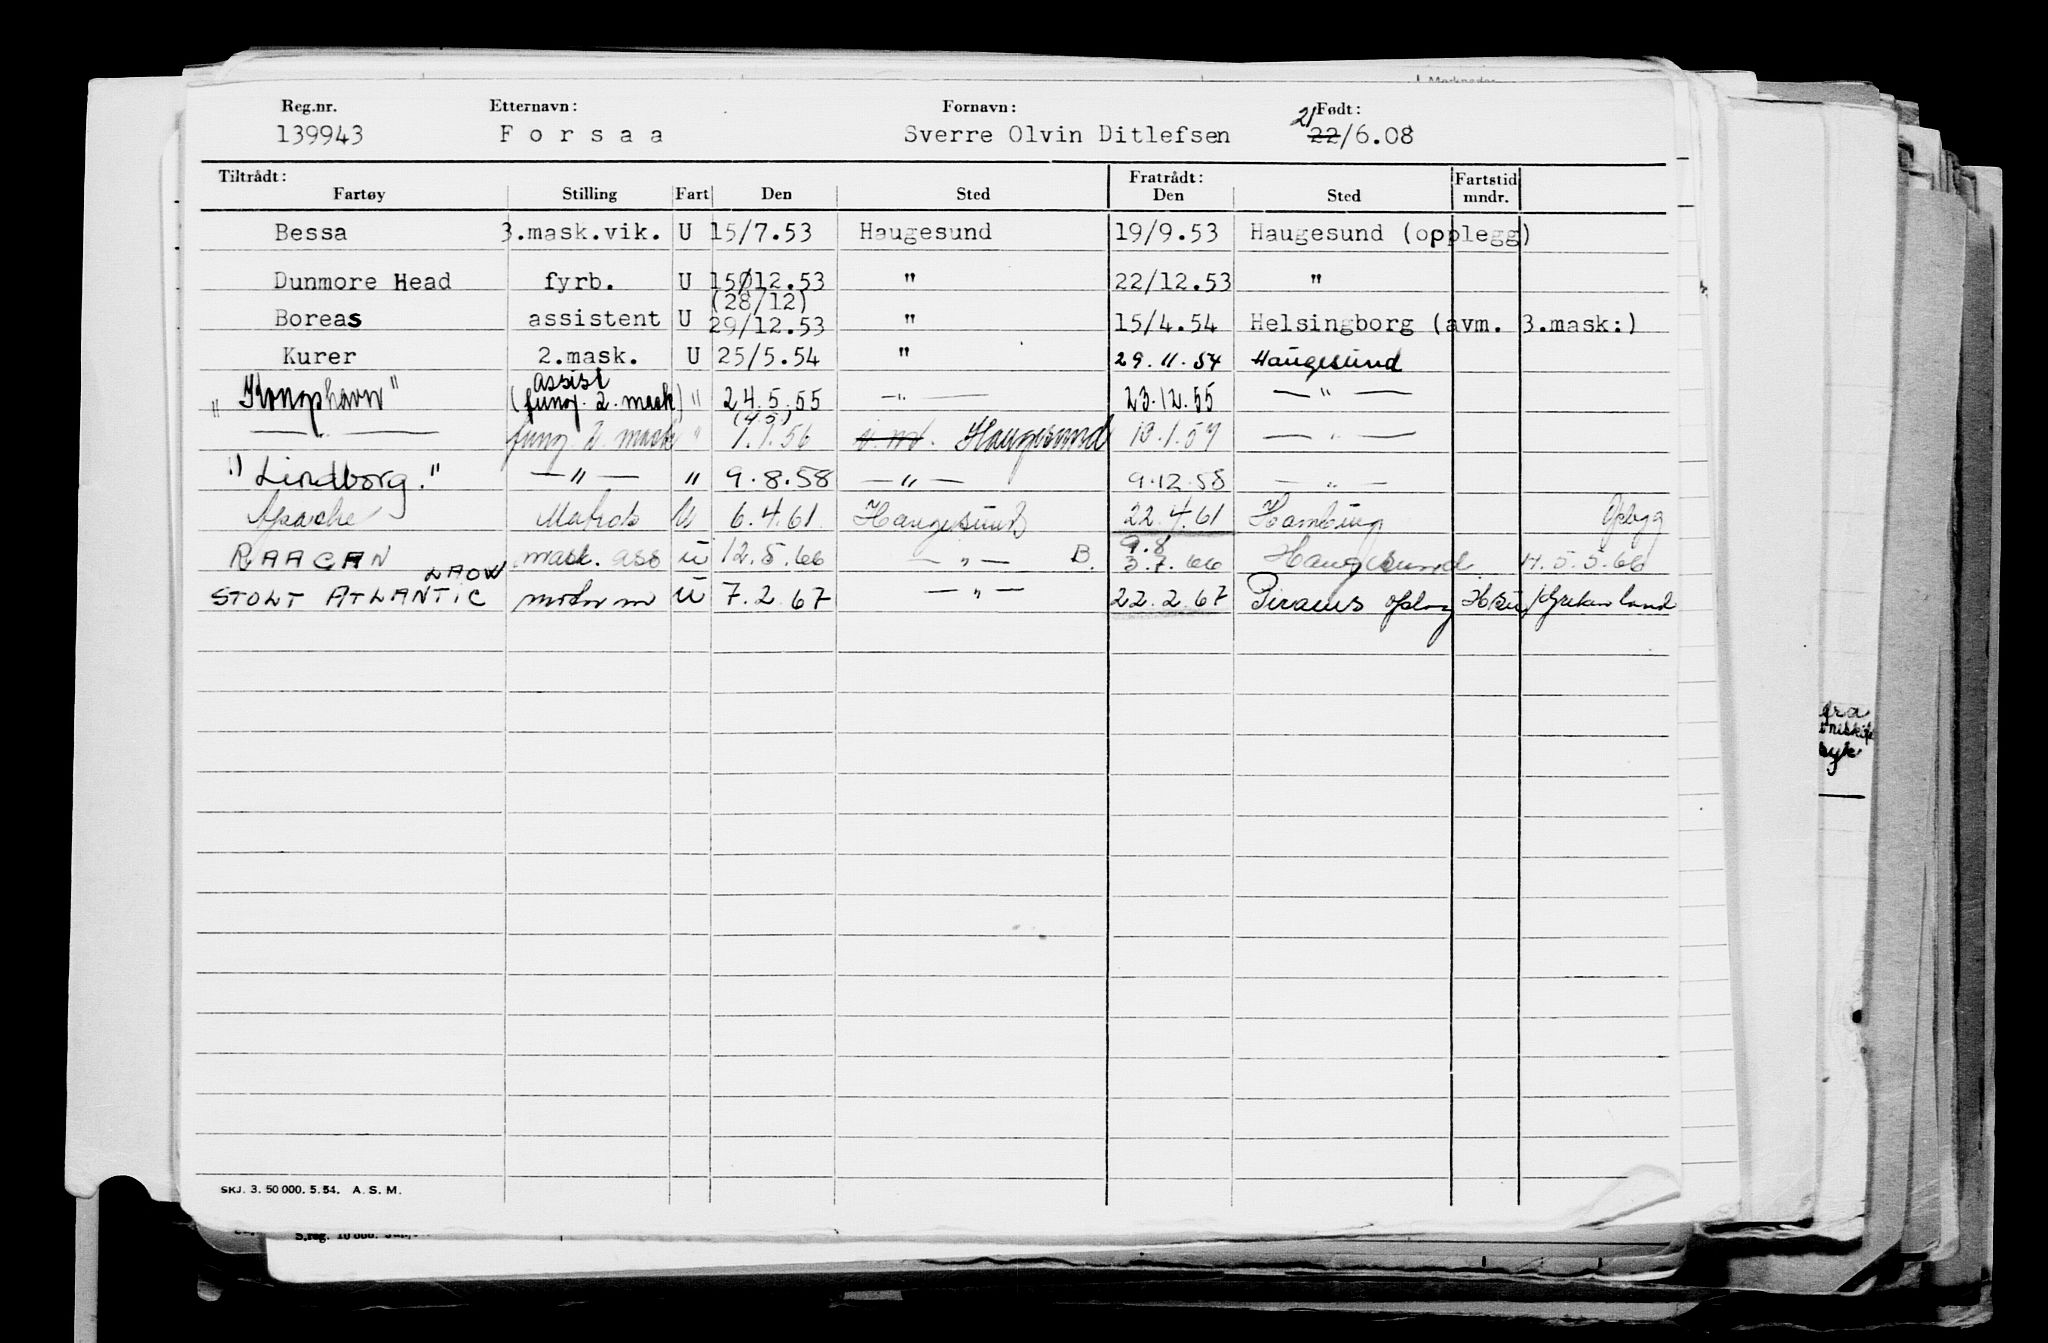 Reg.nr. Etternavn: Fornavn: Født:
139943 Forsaa Sverre Olvin Ditlefsen 21 22/6.08
Tiltrådt: Fratrådt: Fartstid
Fartøy Stilling Fart Den Sted Den Sted mndr.
Bessa 3.mask.vik. U 15/7.53 Haugesund 19/9.53 Haugesund (opplegg)
Dunmore Head fyrb. U 15Ø12.53 " 22/12.53 "
(28/12)
Boreas assistent U 29/12.53 " 15/4.54 Helsingborg (avm. 3.mask:)
Kurer 2.mask. U 25/5.54 " 29.11.54 Haugesund
assist
" Kongshavn" (fung. 2. mask) " 24.5.55 —"— 23.12.55 —"—
—"— fung. 2. mask " 1.1.56 Haugesund 10.1.57 —"—
"Lindborg." —"— " 9.8.58 —"— 9.12.58 —"—
Apache Matros U 6.4.61 Haugesund 22.4.61 Hamburg
9.8
RAAGAN mask. ass U 12.5.66 —"— B. 3.7.66 Haugesund H.5.5.66
LAOW
STOLT ATLANTIC motorm U 7.2.67 —"— 22.2.67 Piraeus
SKJ. 3. 50 000. 5. 54. A. S. M.
S.reg. 10 000.
fra
syk